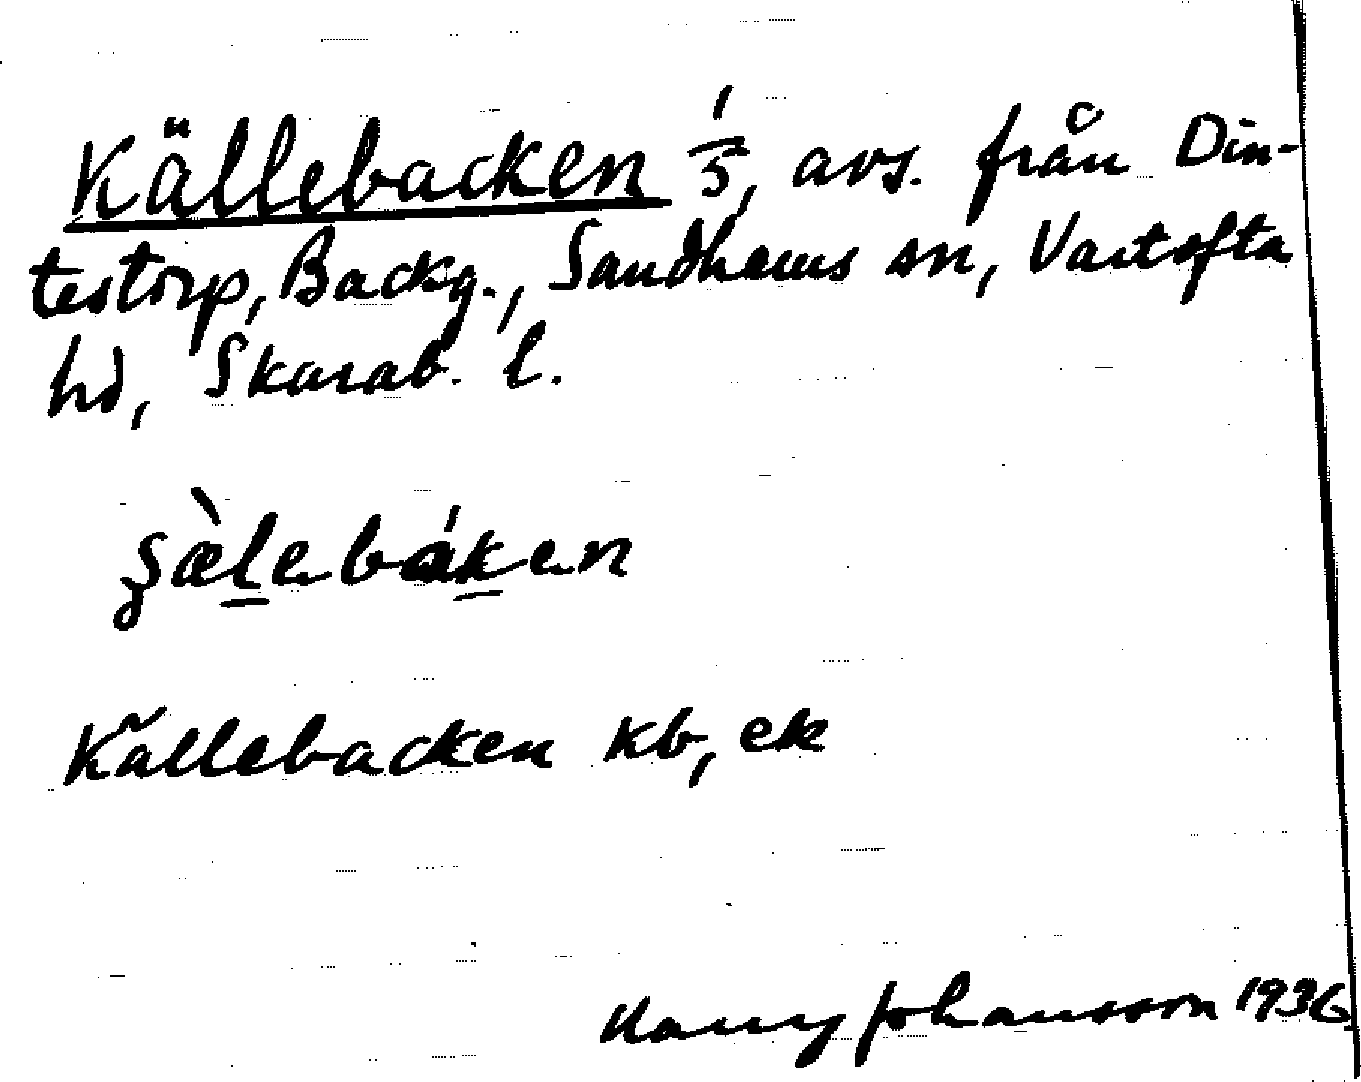 Källebacken 1/5, avs. från Din-
testorp, Backg., Sandhems sn, Vartofta
hd, Skarab. l.
ʂæ̀lebáken
Källebacken kb, ek
Harry Johansson 1936